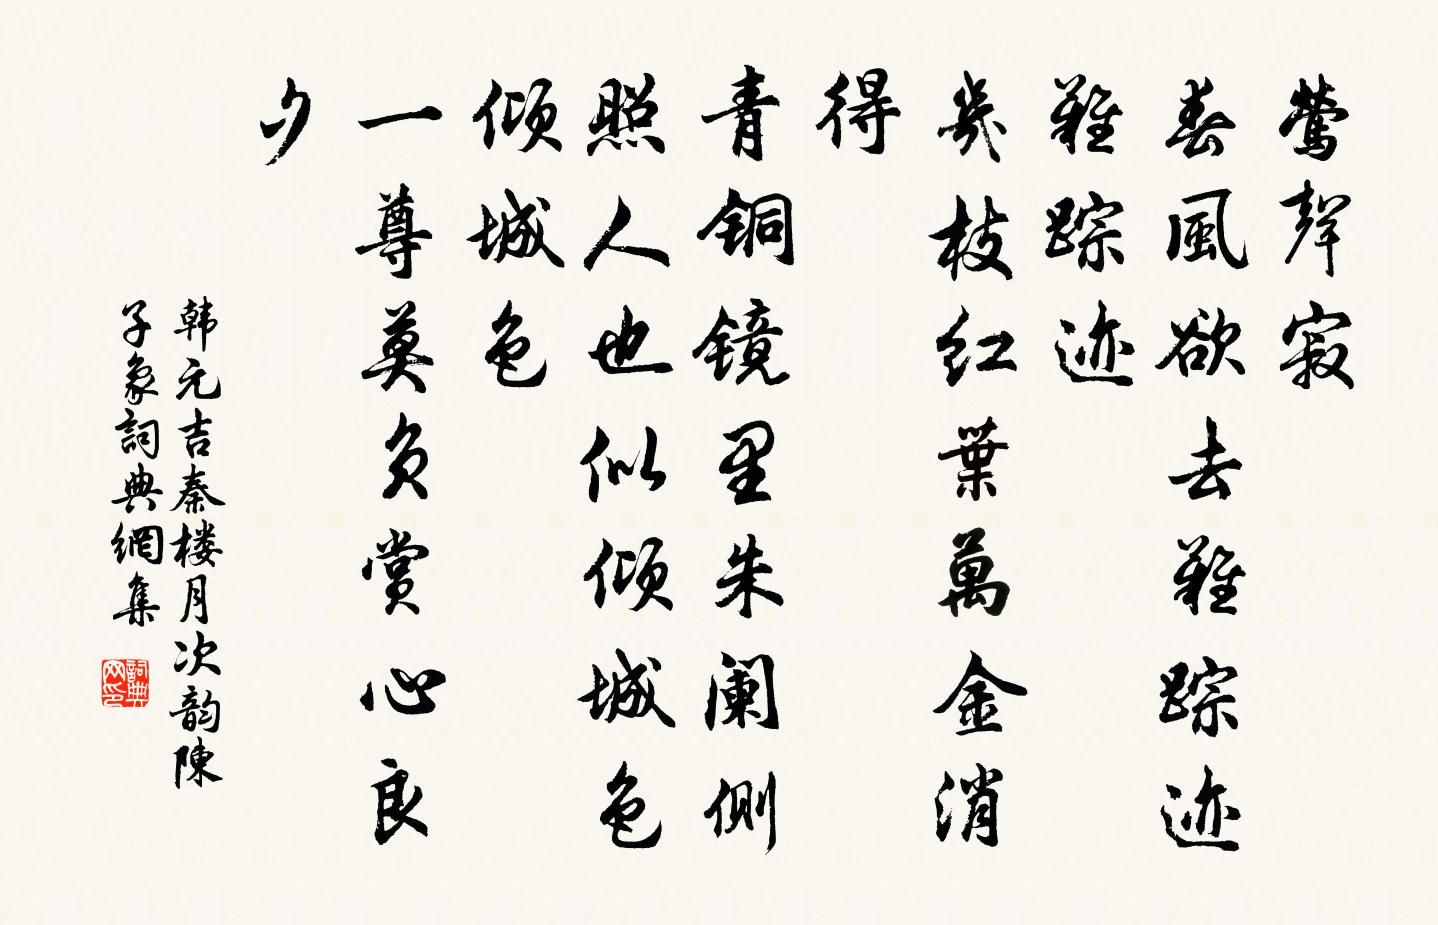 鶯聲寂
春風欲去難踪迹
難踪迹
幾枝紅葉萬金消
得
青铜镜里朱阑側
照人也似傾城色
傾城色
一尊莫负赏心良
夕
韩元吉秦楼月次韵陳
子象詞典網集
詞典
网印